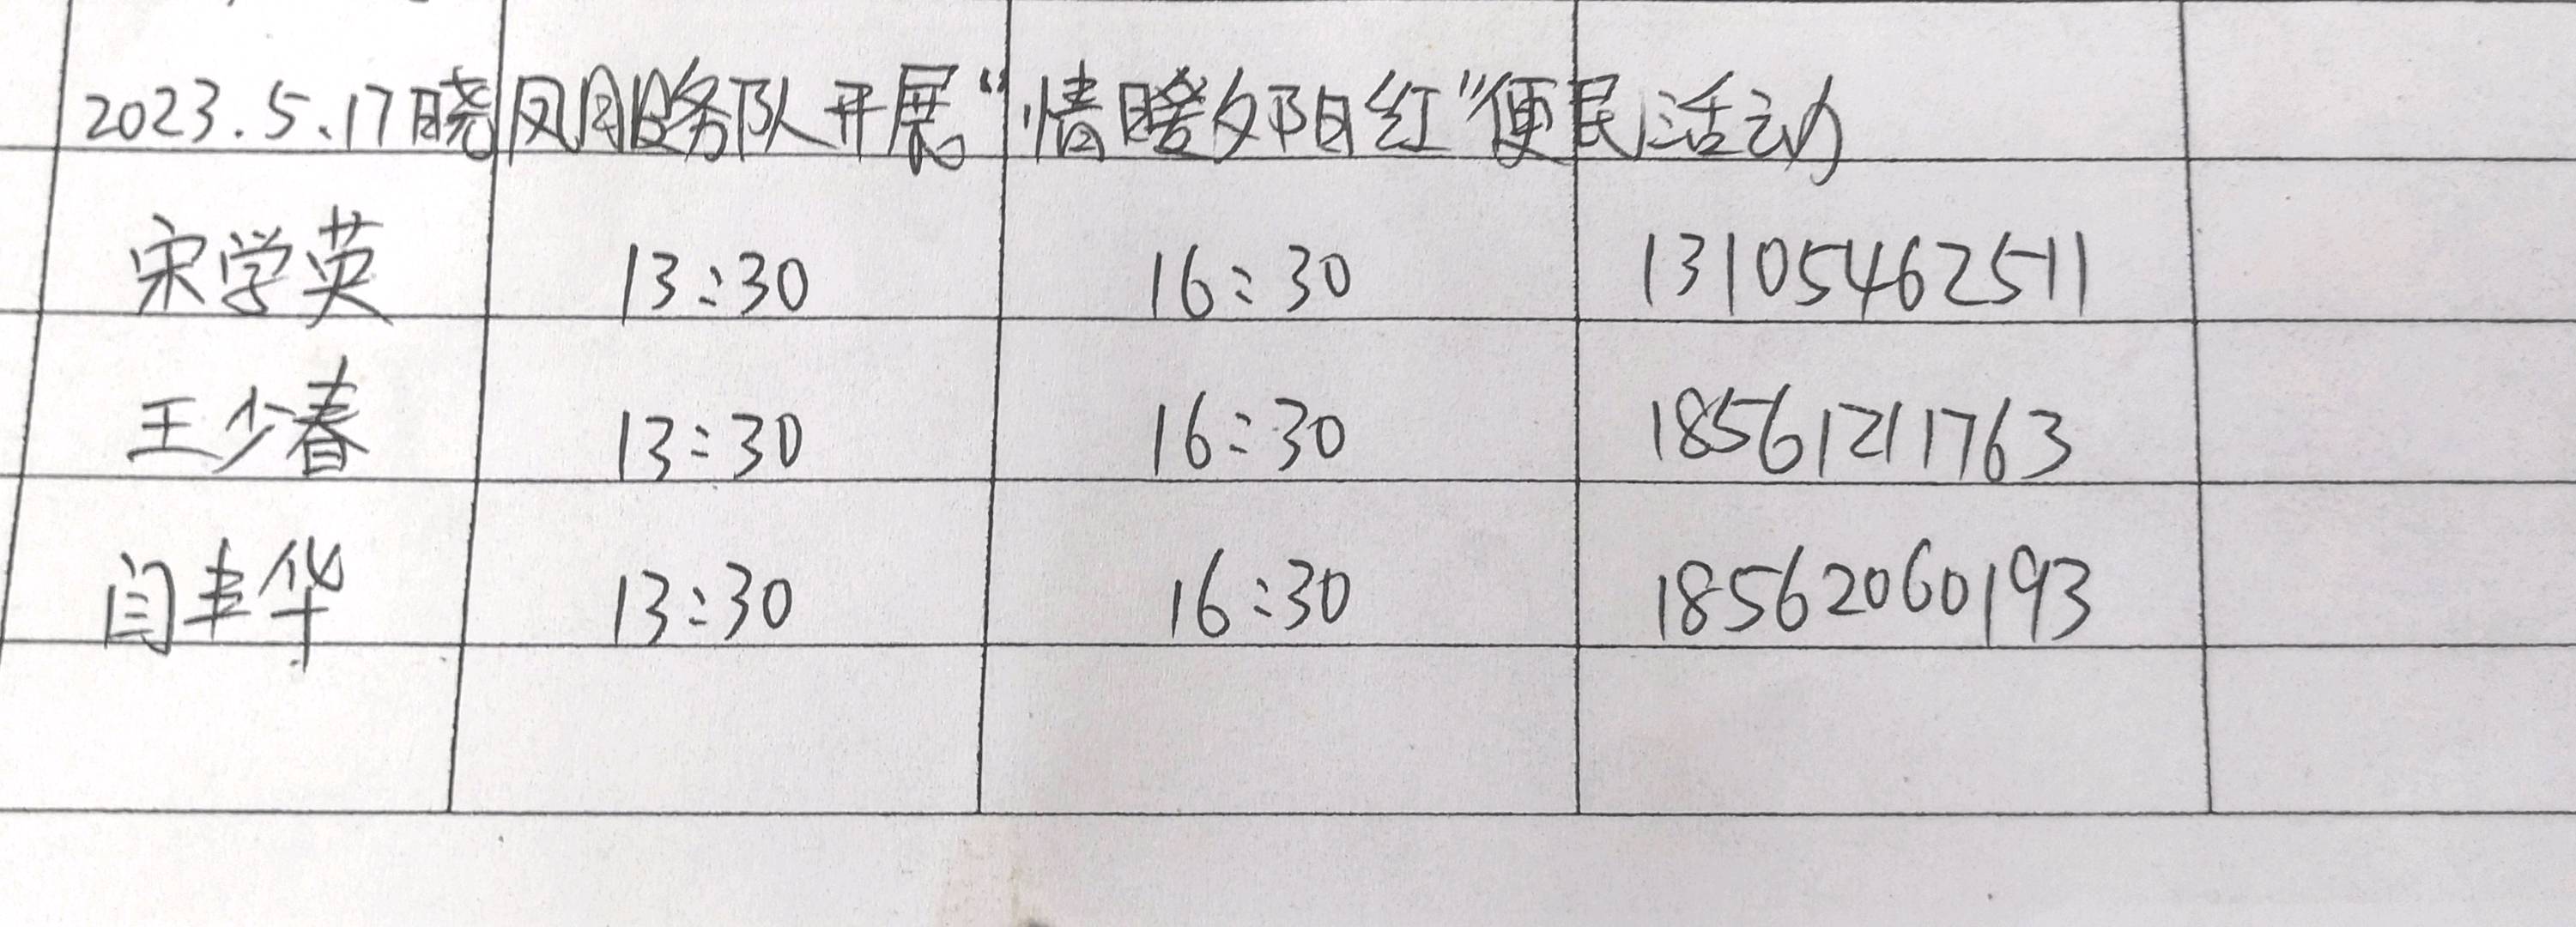 2023.5.17晓凤服务队开展“情暖夕阳红”便民活动
宋学英 13:30 16:30 13105462511
王少春 13:30 16:30 18561211763
闫丰华 13:30 16:30 18562060193